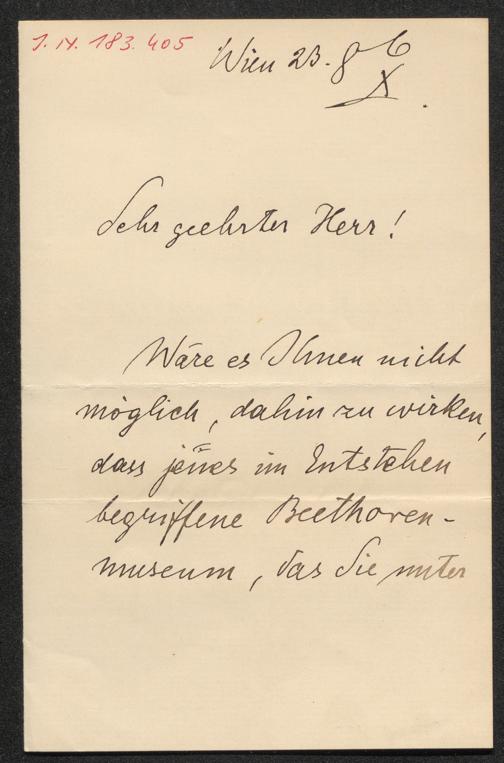 J. N. 183.405
Wien 23. 8 6
X.
Sehr geehrter Herr!
Wäre es Ihnen nicht
möglich, dahin zu wirken,
dass jenes im Entstehen
begriffene Beethoven-
museum, das Sie unter